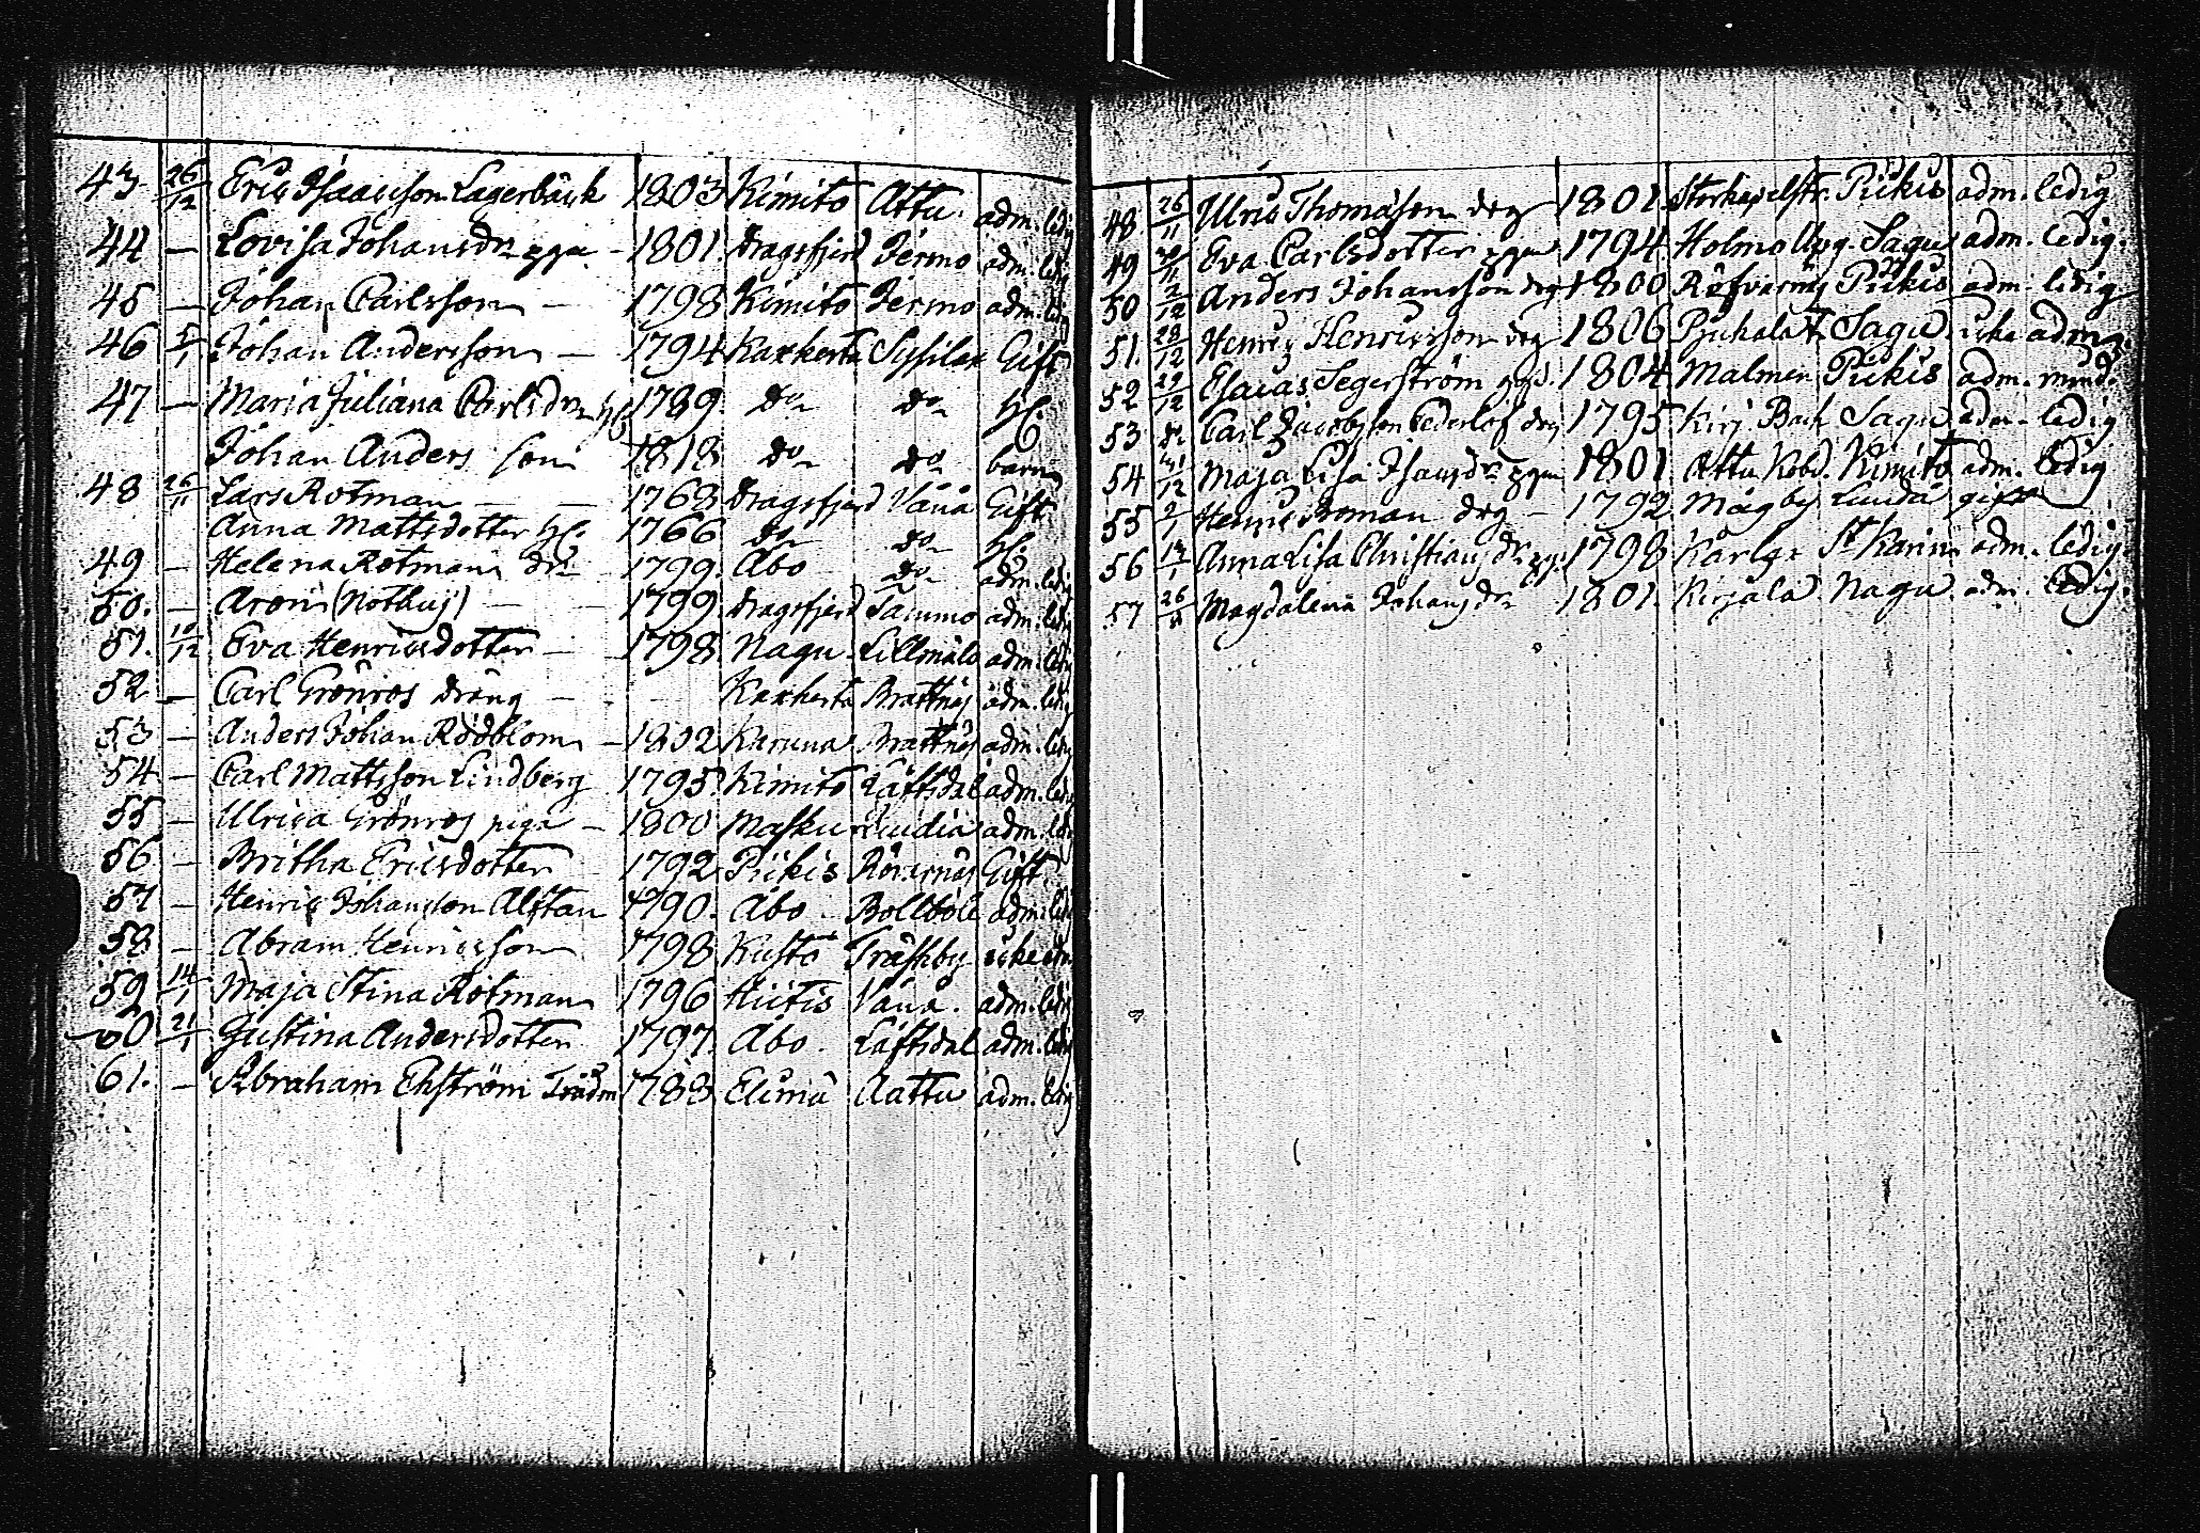 43. 26/12 Eric Isaacsson Lagerbäck 1803 Kimito Attu. adm. ledig
44 — Lovisa Johansdr pga - 1801. Dragsfjerd Jermo adm. ledig
45 — Johan Carlsson — 1798 Kimito Jermo adm. ledig
46 5/1 Johan Andersson — 1794 Kaxkerta Sysilax Gift
47 — Maria Juliana Carlsdr H. 1789 do do H.
Johan Anders son 1818 do do barn
48 26/11 Lars Rotman — 1768 Dragsfjerd Vånå Gift
Anna Mattsdotter H. 1766 do do H.
49 — Helena Rotman dr 1799. Åbo do adm. ledig
50. — Aron (Nothus) — 1799. Dragsfjerd Sammo adm. ledig
51. 10/12 Eva Henricsdotter — 1798. Nagu Lillmälö adm. ledig
52 — Carl Grönros dräng — Kaxkerta Brattnäs adm. ledig
53 — Anders Johan Rödblom — 1802 Karuna Brattnäs adm. ledig
54 — Carl Mattsson Lindberg 1795 Kimito Läftsdal adm. ledig
55 — Ulrica Grönros piga — 1800 Masku adm. ledig
56 — Britha Ericsdotter 1792 Piikis Gift.
57 — Henric Johansson Alftan 1790. Åbo Bollböle adm. ledig
58 — Abram Henricsson 1798 Kustö Träskby icke adm
59 14/1 Maja Stina Rotman 1796 Hiitis Vånå. adm. ledig
60 21/1 Justina Andersdotter 1797. Åbo. Läftsdal adm. ledig
61. — Abraham Ekström 1783 Elimä Aattu adm. ledig
48 26/11 Ulric Thomasson drg 1801. Storkapelstr. Piikis adm. ledig
49 Eva Carlsdotter pga 1794. Holmo Sagu adm. ledig.
50 2/12 Anders Johansson drg 1800 Röfvarnäs Piikis adm. ledig
51. 28/12 Henric Henricsson drg 1806 Pjukala Sagu icke adm.
52 29/12 Esaias Segerström 1804 Malmen Piikis adm.
53 do Carl Jacobsson Cederlöf drg 1795 Kirj. Back Sagu adm. ledig
54 31/12 Maja Lisa Isacsdr pga 1801 Attu Kobd. Kimito adm. ledig
55 2/1 Henric Roman drg — 1792 Mågby Lundå gift
56 14/1 Anna Lisa Christiansdr pg. 1798 Karlsr St Karins adm. ledig.
57 26/1 Magdalena Johansdr 1801. Kirjala Nagu. adm. ledig.